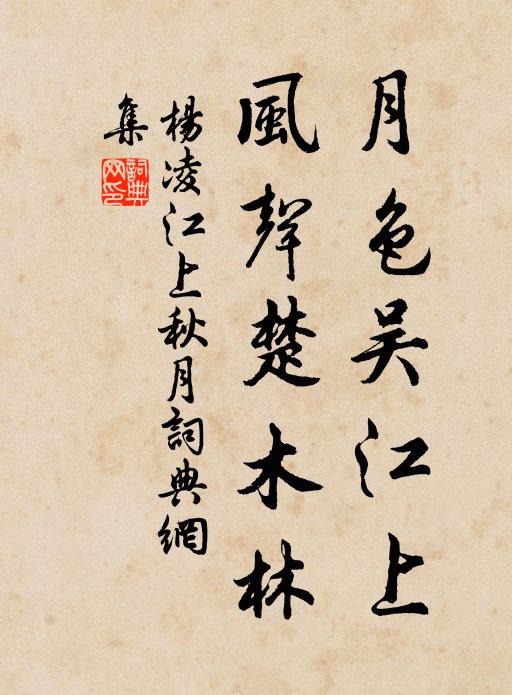 月色吴江上
風聲楚木林
楊凌江上秋月詞典網
集
詞典
网印